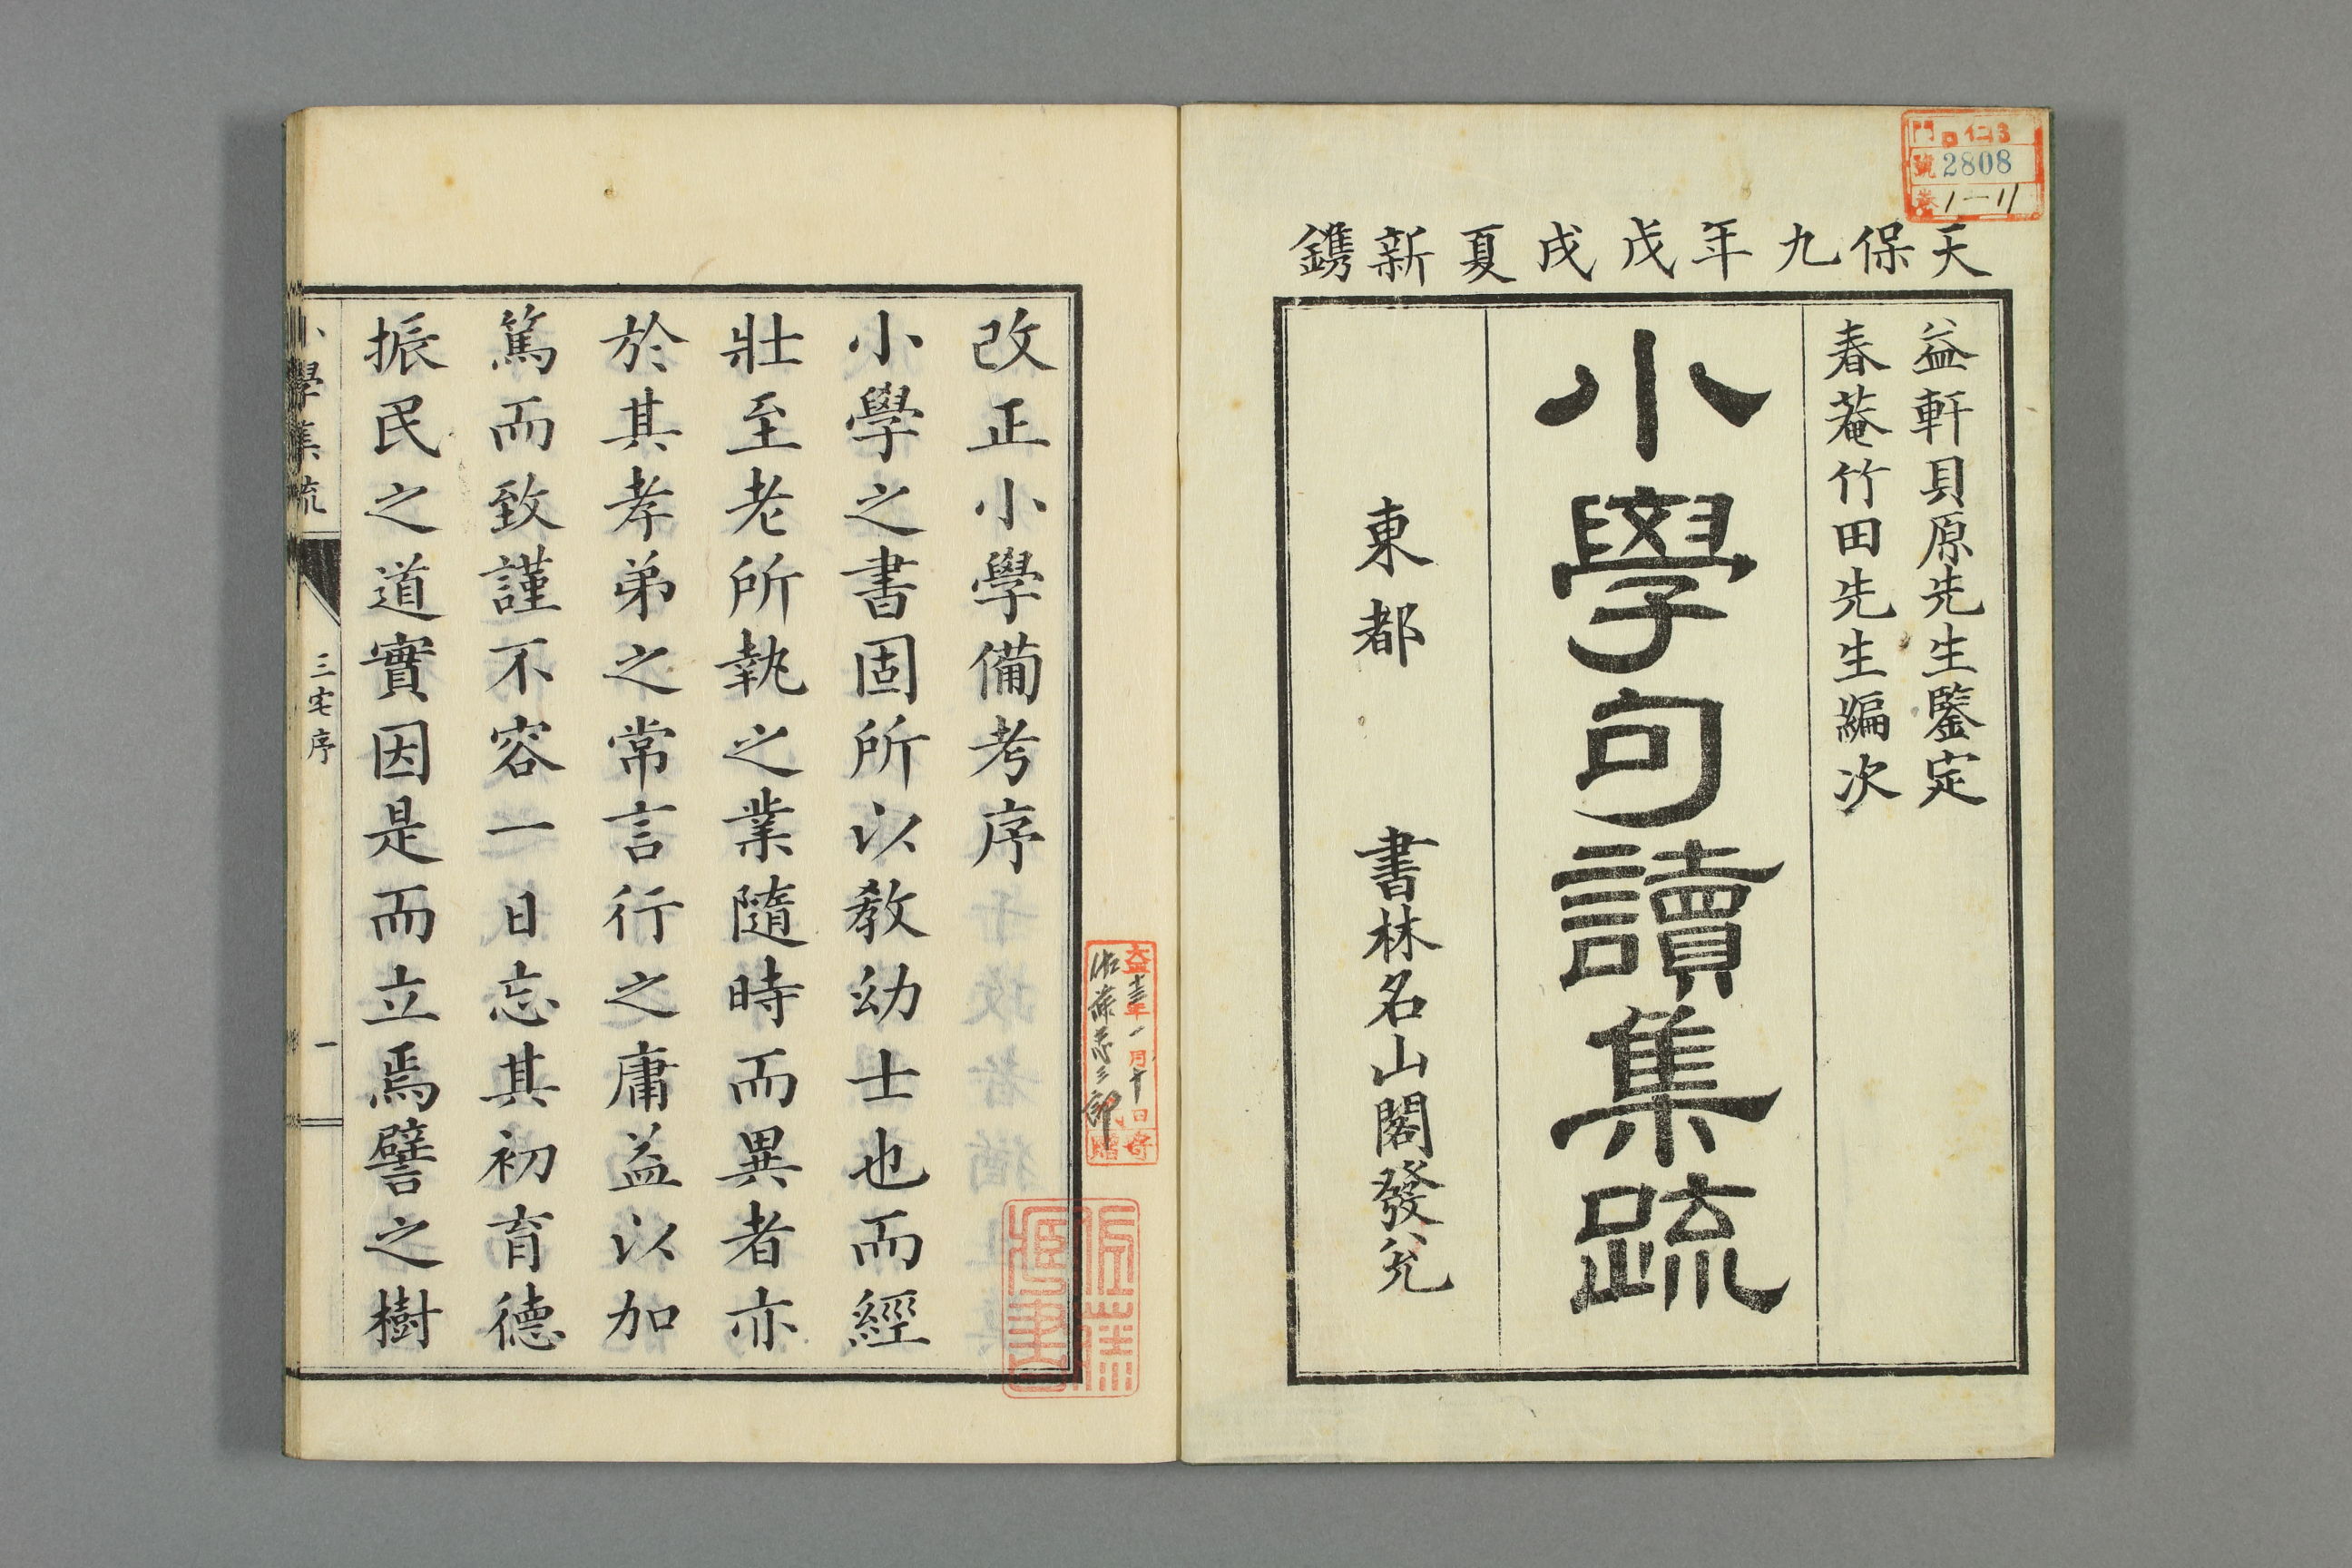 天保九年戊戌夏新鐫
益軒貝原先生鑒定
春菴竹田先生編次
小學句讀集疏
東都 書林名山閣發兌
門 仁3
號 2808
卷 1-11
改正小學備考序
小學之書固所以教幼士也而經
壯至老所執之業隨時而異者亦
於其孝弟之常言行之庸益以加
篤而致謹不容一日忘其初育德
振民之道實因是而立焉譬之樹
小學集疏 三宅序 一
月十日寄贈
佐藤 三郎
佐藤 書